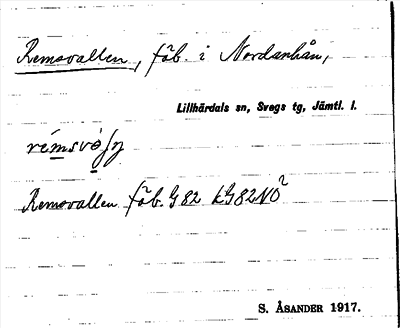 Remsvallen, fäb. i Nordanhån,
Lillhärdals sn, Svegs tg, Jämtl. l.
Remsvallen fäb. G 82 kG82NO²
S. ÅSANDER 1917.